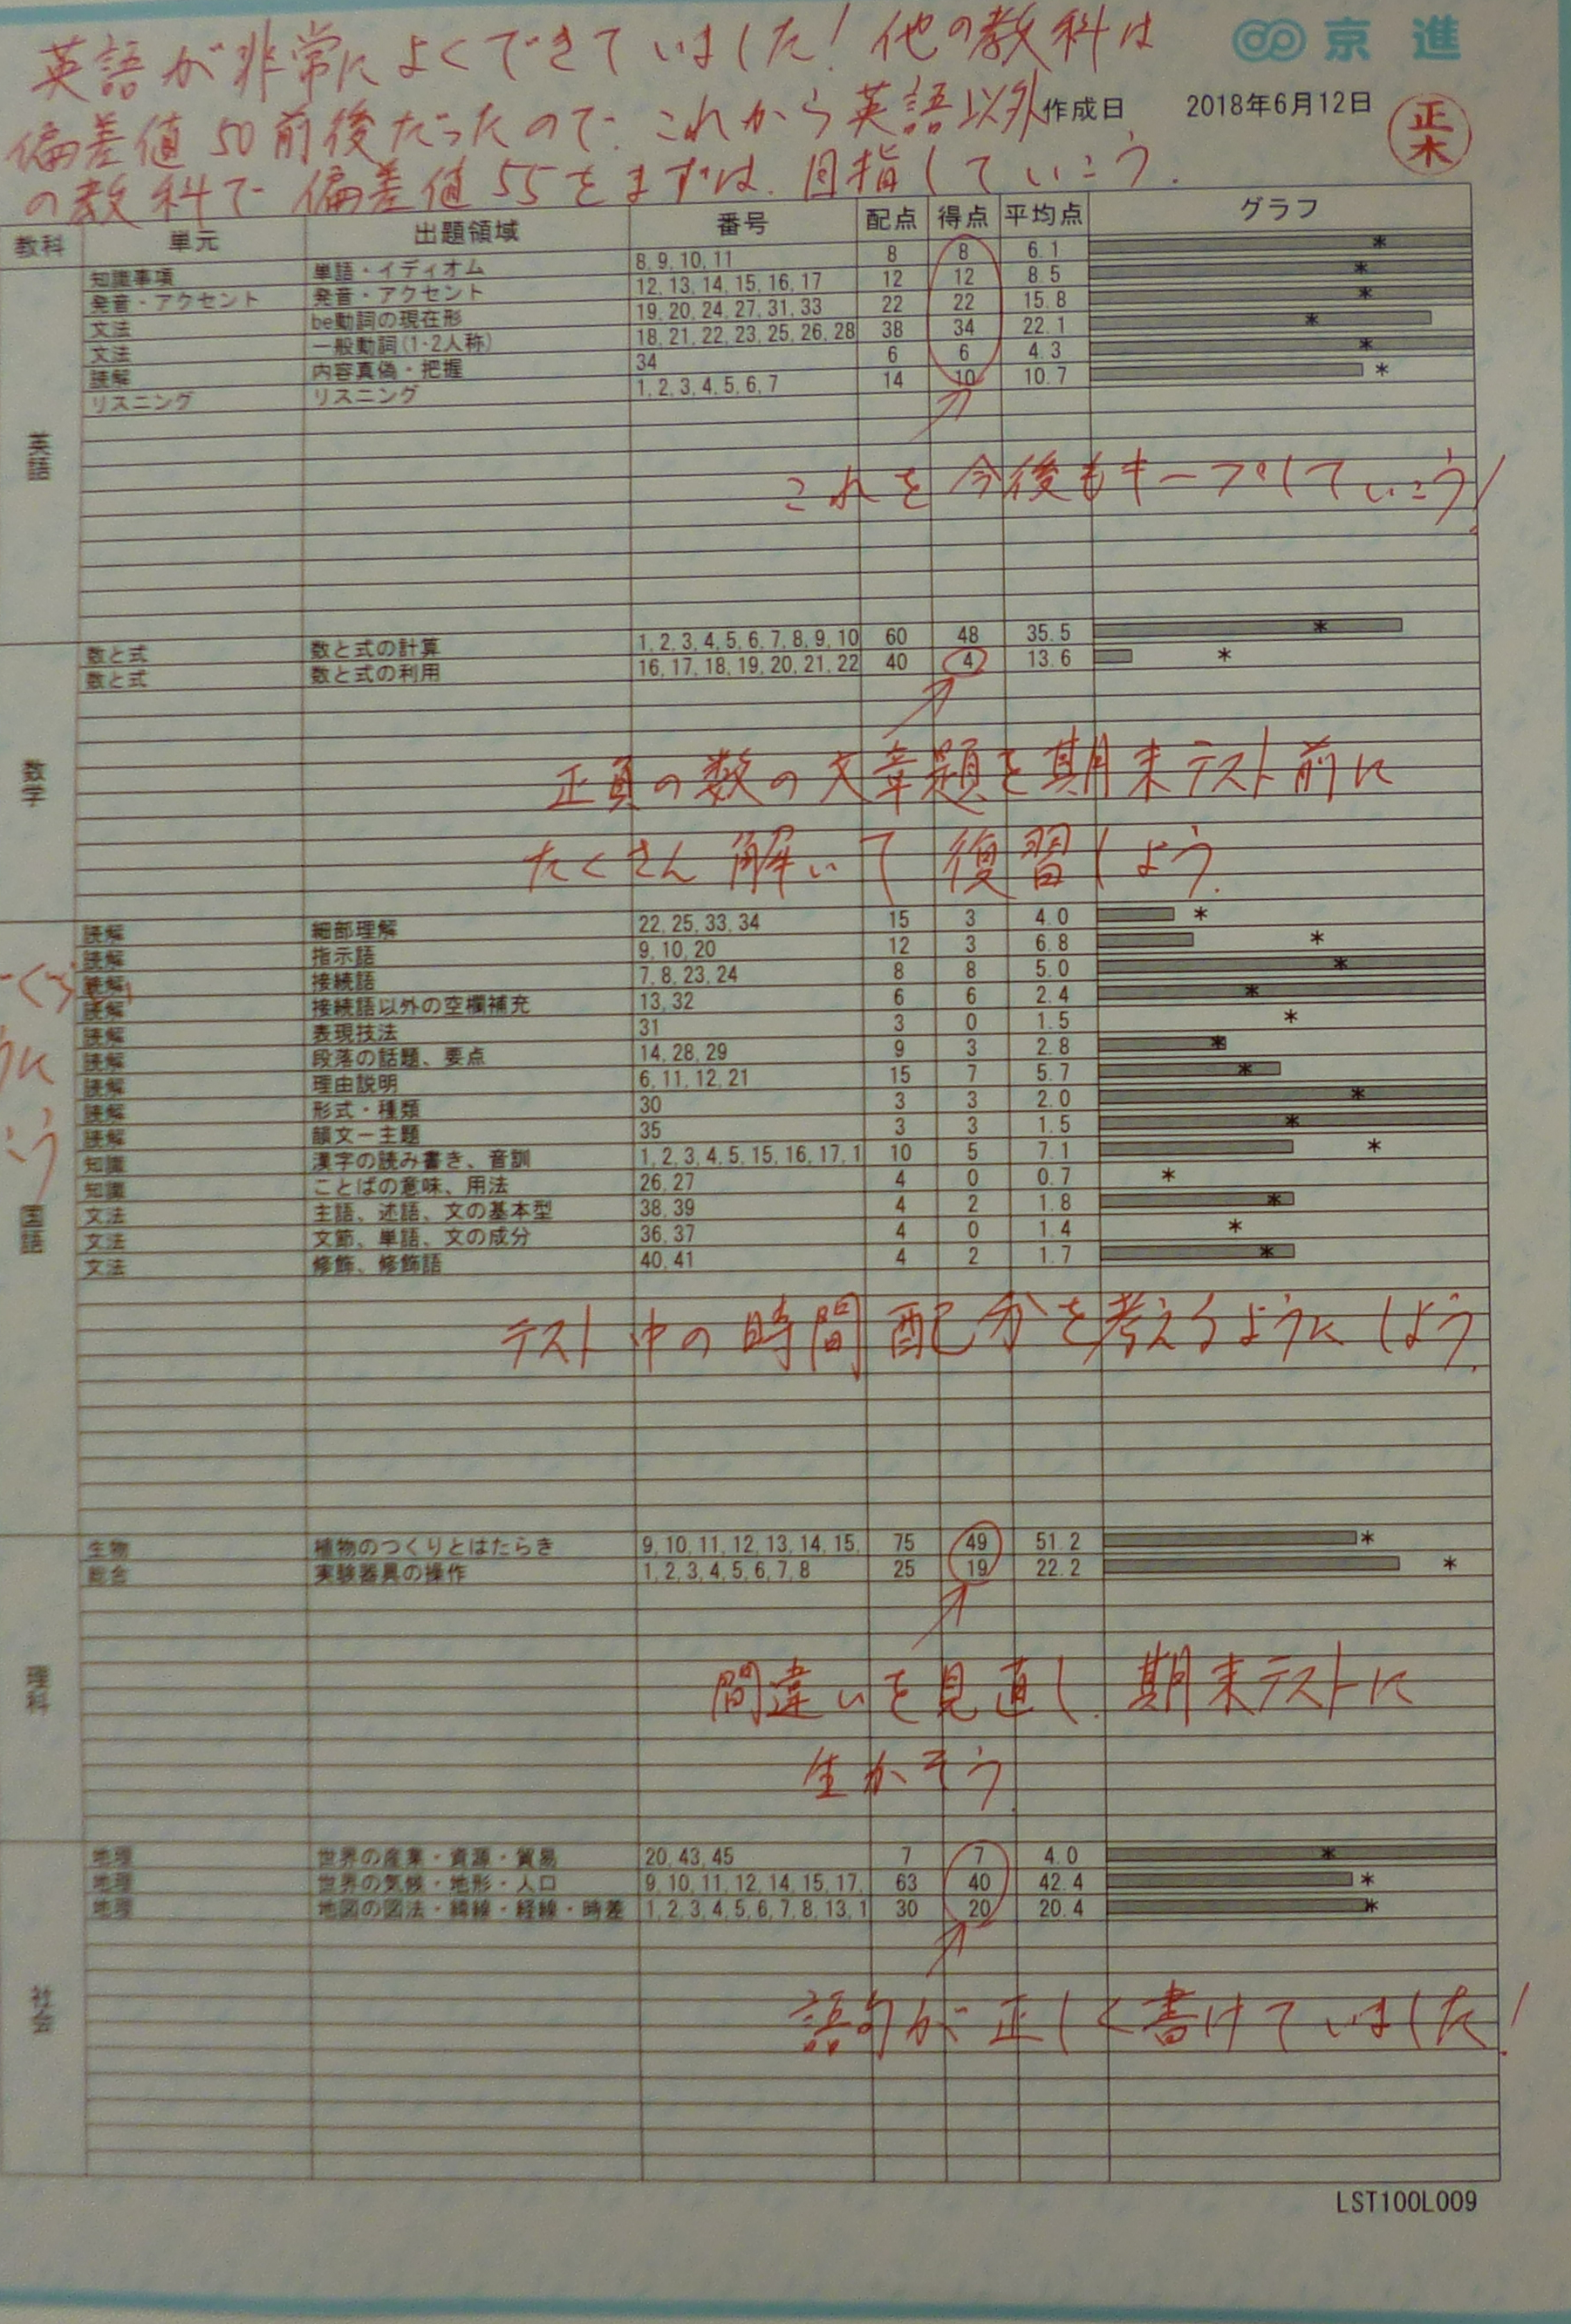 英語が非常によくできていました！他の教科は
京進
偏差値50前後だったので、これから英語以外
作成日 2018年6月12日
正木
の教科で偏差値55をまずは、目指していこう．
教科 単元 出題領域 番号 配点 得点 平均点 グラフ
英語
知識事項 単語・イディオム 8, 9, 10, 11 8 8 6.1
発音・アクセント 発音・アクセント 12, 13, 14, 15, 16, 17 12 12 8.5
文法 be動詞の現在形 19, 20, 24, 27, 31, 33 22 22 15.8
文法 一般動詞(1・2人称) 18, 21, 22, 23, 25, 26, 28 38 34 22.1
読解 内容真偽・把握 34 6 6 4.3
リスニング リスニング 1, 2, 3, 4, 5, 6, 7 14 10 10.7
これを今後もキープしていこう！
数学
数と式 数と式の計算 1, 2, 3, 4, 5, 6, 7, 8, 9, 10 60 48 35.5
数と式 数と式の利用 16, 17, 18, 19, 20, 21, 22 40 4 13.6
正負の数の文章題を期末テスト前に
たくさん解いて復習しよう．
国語
読解 細部理解 22, 25, 33, 34 15 3 4.0
読解 指示語 9, 10, 20 12 3 6.8
読解 接続語 7, 8, 23, 24 8 8 5.0
読解 接続語以外の空欄補充 13, 32 6 6 2.4
読解 表現技法 31 3 0 1.5
読解 段落の話題、要点 14, 28, 29 9 3 2.8
読解 理由説明 6, 11, 12, 21 15 7 5.7
読解 形式・種類 30 3 3 2.0
読解 韻文－主題 35 3 3 1.5
知識 漢字の読み書き、音訓 1, 2, 3, 4, 5, 15, 16, 17, 1 10 5 7.1
知識 ことばの意味、用法 26, 27 4 0 0.7
文法 主語、述語、文の基本型 38, 39 4 2 1.8
文法 文節、単語、文の成分 36, 37 4 0 1.4
文法 修飾、修飾語 40, 41 4 2 1.7
テスト中の時間配分を考えるようにしよう．
理科
生物 植物のつくりとはたらき 9, 10, 11, 12, 13, 14, 15, 75 49 51.2
総合 実験器具の操作 1, 2, 3, 4, 5, 6, 7, 8 25 19 22.2
間違いを見直し、期末テストに
生かそう．
社会
地理 世界の産業・資源・貿易 20, 43, 45 7 7 4.0
地理 世界の気候・地形・人口 9, 10, 11, 12, 14, 15, 17, 63 40 42.4
地理 地図の図法・緯線・経線・時差 1, 2, 3, 4, 5, 6, 7, 8, 13, 1 30 20 20.4
語句が正しく書けていました！
LST100L009